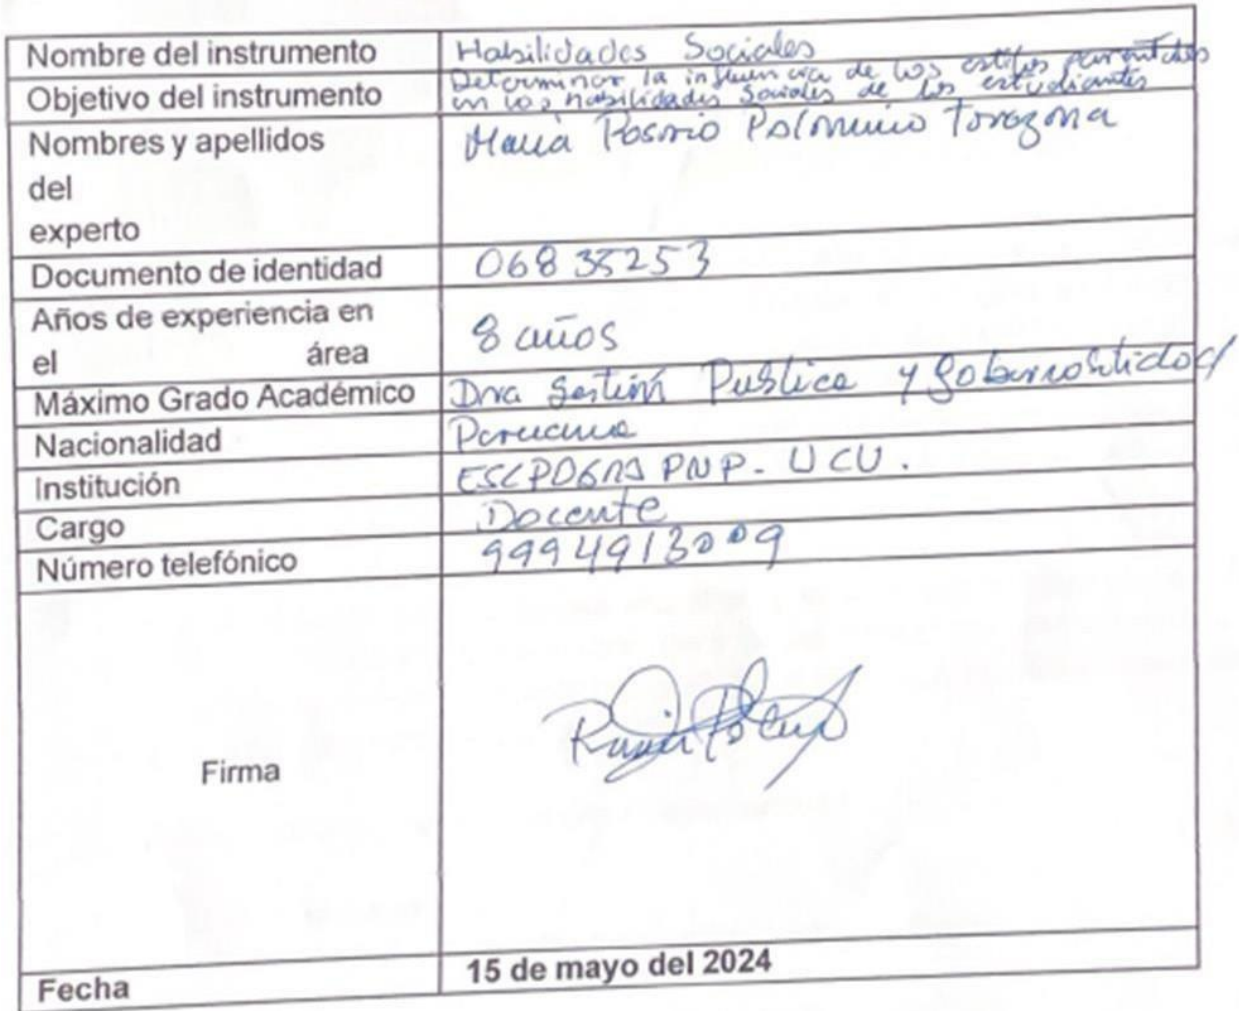 Nombre del instrumento Habilidades Sociales
Objetivo del instrumento Determinar la influencia de los estilos parentales
en los habilidades sociales de los estudiantes
Nombres y apellidos María Rosario Palomino Torazona
del
experto
Documento de identidad 06835253
Años de experiencia en
el área 8 años
Máximo Grado Académico Dra Gestión Publica y Gobernabilidad
Nacionalidad Peruana
Institución ESCPOGRA PNP - UCV.
Cargo Docente
Número telefónico 9994913009
Firma
Fecha 15 de mayo del 2024